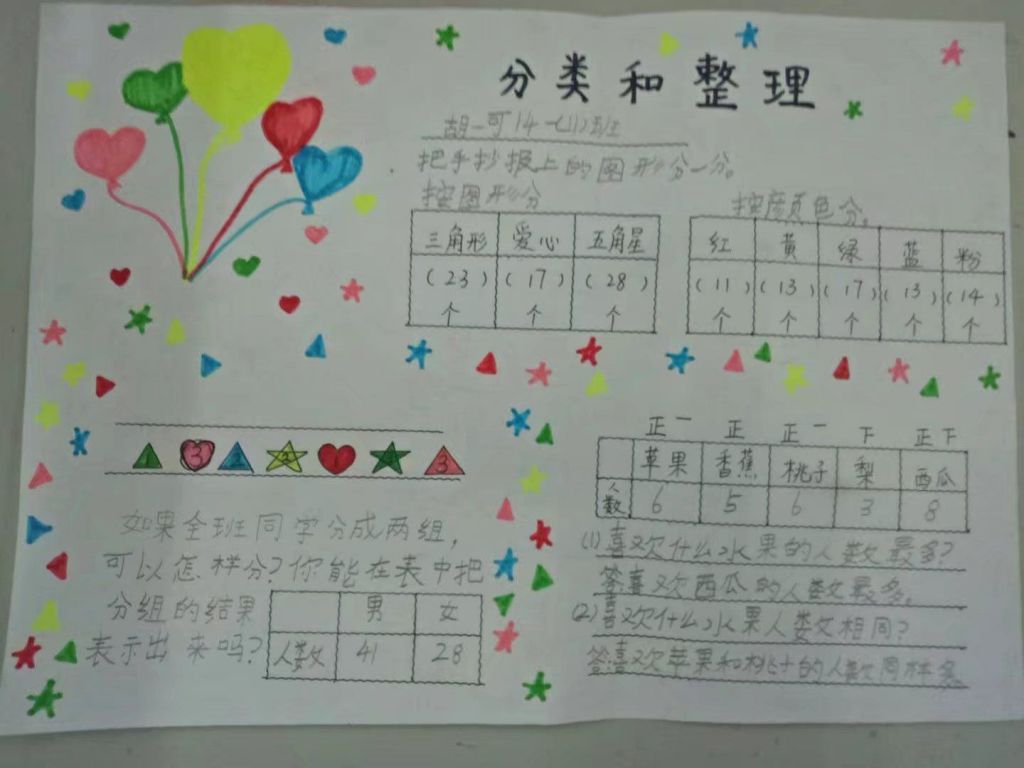 分类和整理
胡一可
把手抄报上的图形分一分。
按图形分
三角形 爱心 五角星
(23) (17) (28)
个 个 个
按颜色分。
红 黄 绿 蓝 粉
(11) (13) (17) (13) (14)
个 个 个 个 个
3 2 2 3
如果全班同学分成两组,
可以怎样分?你能在表中把
分组的结果
表示出来吗?
男 女
人数 41 28
正一 正 正一 下 正下
苹果 香蕉 桃子 梨 西瓜
人数 6 5 6 3 8
(1)喜欢什么水果的人数最多?
答喜欢西瓜的人数最多。
(2)喜欢什么水果人数相同?
答:喜欢苹果和桃子的人数同样多